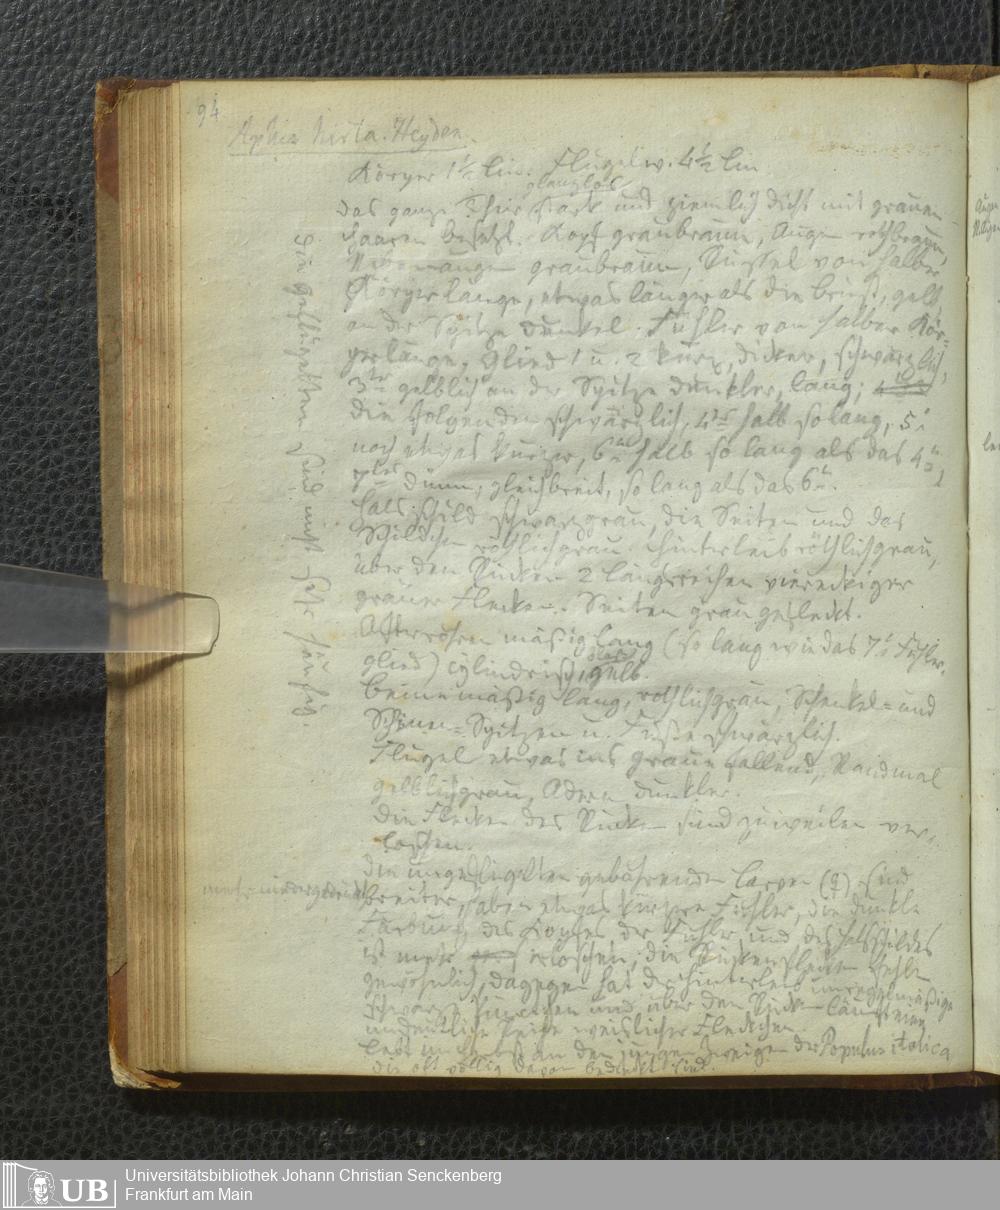 94
Aphis hirta. Heyden.
Körper 1½ lin. Flügelw. 4½ lin
glanzlos
das ganze Thier stark und ziemlich dicht mit grauen
Haaren besetzt. Kopf graubraun, Augen rothbraun,
Nebenaugen graubraun, Rüssel von halber
Körperlänge, etwas länger als die Brust, gelb
an der Spitze dunkel. Fühler von halber Kör-
perlänge, Glied 1 u. 2 kurz, dicker, schwärzlich,
3tes gelblich an der Spitze dunkler, lang;
die folgenden schwärzlich, 4tes halb so lang, 5s
noch etwas kürzer, 6s halb so lang als das 4s,
7tes dünn, gleichbreit, so lang als das 6s.
Halsschild schwarzgrau, die Seiten und das
Schildchen röthlichgrau. Hinterleib röthlichgrau,
über den Rücken 2 Längsreihen viereckiger
grauer Flecken. Seiten grau gefleckt.
Afterröhren mäßig lang (so lang wie das 7s Fühler-
glied) cylindrisch, gelb.
Beine mäßig lang, röthlichgrau, Schenkel- und
Schienen-Spitzen u. Füße schwärzlich.
Flügel etwas ins graue fallend, Randmal
gelblichgrau, Adern dunkler.
Die Flecken des Rücken sind zuweilen ver-
loschen.
Die ungeflügelten gebährenden Larven (♀) sind
mehr niedergedrückt
breiter, haben etwas kürzere Fühler, die dunkle
Färbung des Kopfes der Fühler und des Halsschildes
ist mehr erloschen, die Rückenflecken fehlen
gewöhnlich, dagegen hat der Hinterleib unregelmäßige
schwarze Pünctchen und über den Rücken längs eine
undeutliche Reihe weislicher Fleckchen.
Lebt im an den jungen Zweigen der Populus italica
die oft völlig davon bedeckt sind.
Die geflügelten sind nicht sehr häufig.
Augen
Universitätsbibliothek Johann Christian Senckenberg
Frankfurt am Main
UB